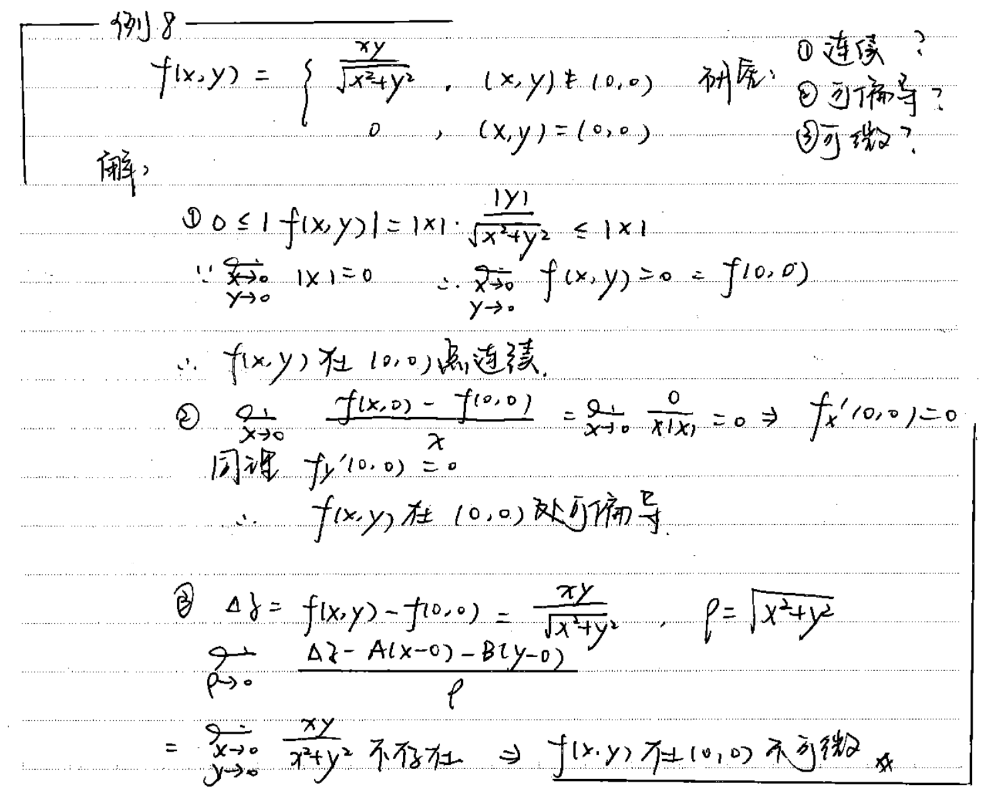 例8
f(x,y) = { xy/√(x²+y²) , (x,y)≠(0,0) 研究: ① 连续?
② 可偏导?
0 , (x,y)=(0,0) ③可微?
解:
① 0 ≤ |f(x,y)| = |x|·|y|/√(x²+y²) ≤ |x|
∵ lim x→0 y→0 |x|=0 ∴ lim x→0 y→0 f(x,y)=0 = f(0,0)
∴ f(x,y)在(0,0)点连续.
② lim x→0 (f(x,0) - f(0,0))/x = lim x→0 0/(x|x|) = 0 ⇒ fx'(0,0)=0
同理 fy'(0,0) = 0
∴ f(x,y)在(0,0)处可偏导.
③ Δz = f(x,y)-f(0,0) = xy/√(x²+y²) , ρ=√(x²+y²)
lim ρ→0 (Δz - A(x-0) - B(y-0))/ρ
= lim x→0 y→0 xy/(x²+y²) 不存在 ⇒ f(x,y)在(0,0)不可微